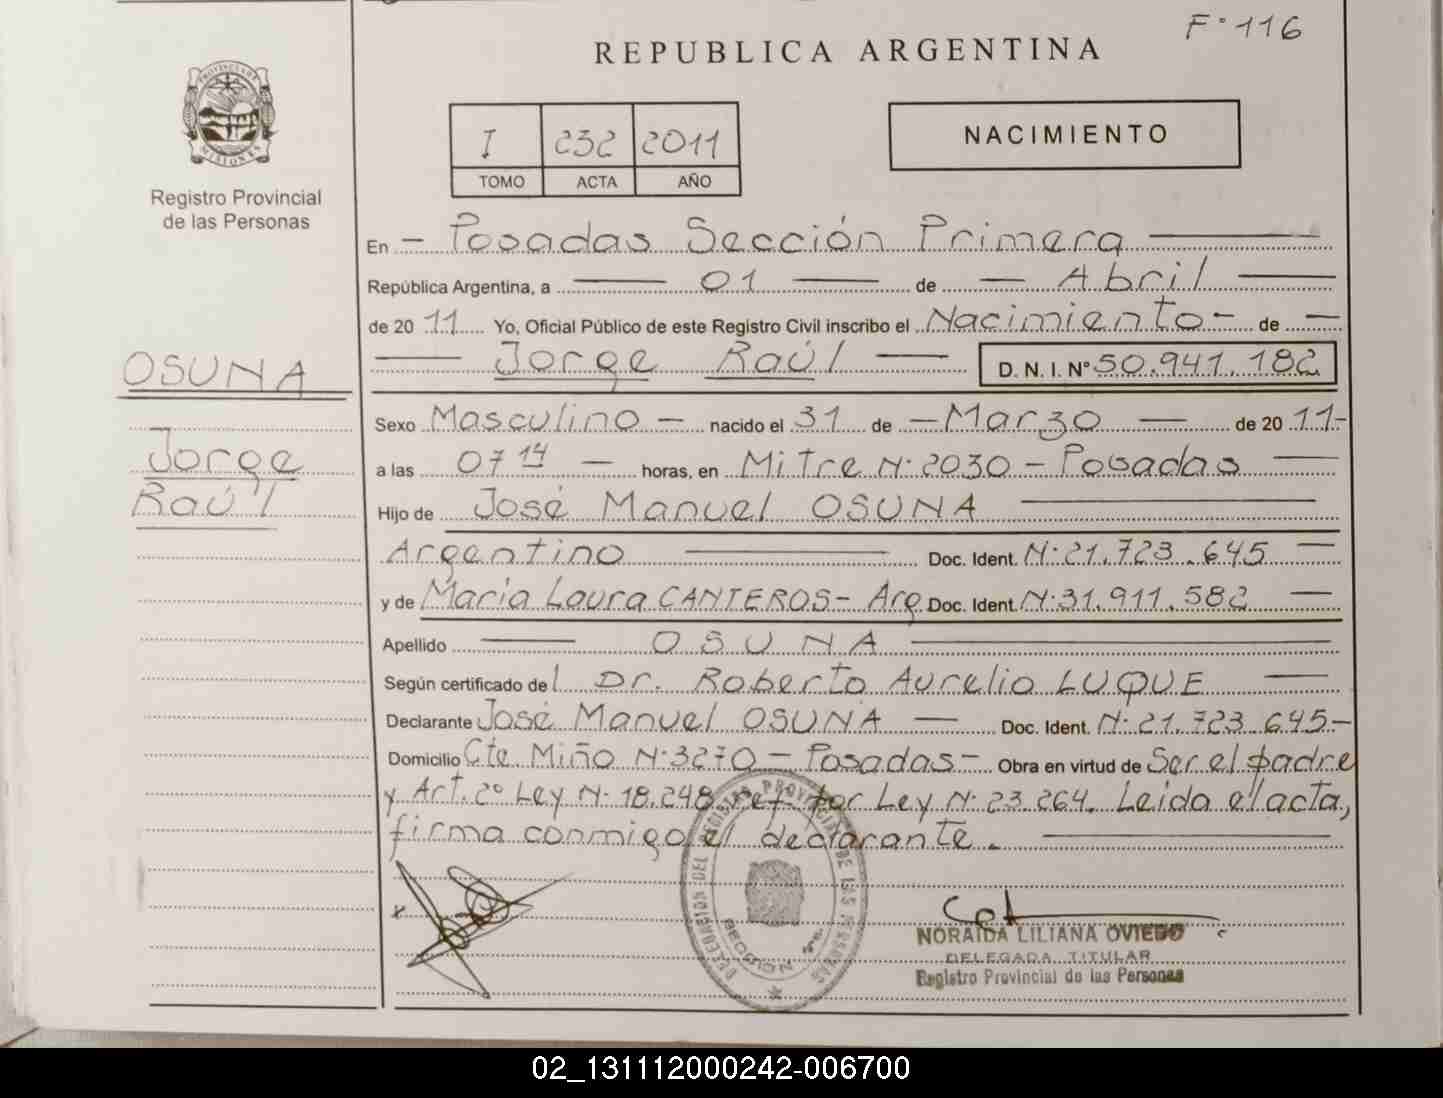 F° 116
REPUBLICA ARGENTINA
PROVINCIA DE
MISIONES
Registro Provincial
de las Personas
I 232 2011
TOMO ACTA AÑO
NACIMIENTO
En - Posadas Sección Primera
República Argentina, a 01 de Abril
de 2011 Yo, Oficial Público de este Registro Civil inscribo el Nacimiento - de -
Jorge Raúl D. N. I. N° 50.941.182
OSUNA
Jorge
Raúl
Sexo Masculino - nacido el 31 de - Marzo - de 2011-
a las 07 14 - horas, en Mitre N° 2030 - Posadas
Hijo de José Manuel OSUNA
Argentino Doc. Ident. N° 21.723.645
y de María Laura CANTEROS - Arg. Doc. Ident. N° 31.911.582
Apellido OSUNA
Según certificado del Dr. Roberto Aurelio LUQUE
Declarante José Manuel OSUNA - Doc. Ident. N° 21.723.645-
Domicilio Cte Miño N° 3270 - Posadas - Obra en virtud de Ser el padre
y Art. 2° Ley N° 18.248 ref. por Ley N° 23.264. Leída el acta,
firma conmigo el declarante.
DELEGACION DEL REGISTRO PROVINCIAL DE LAS PERSONAS
SECCION 1ra.
NORAIDA LILIANA OVIEDO
DELEGADA TITULAR
Registro Provincial de las Personas
02_131112000242-006700